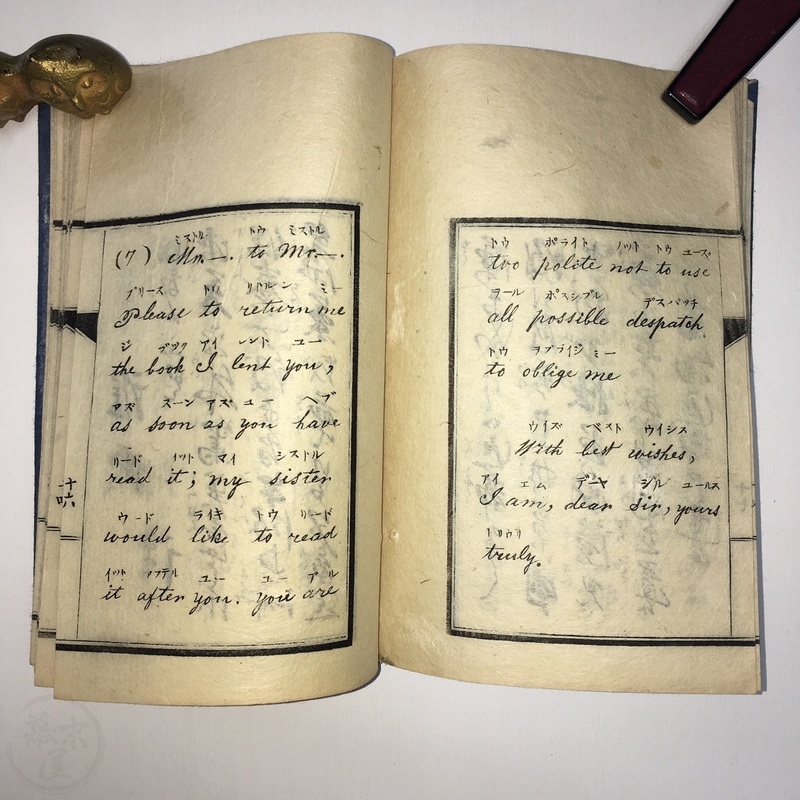 ミストル トウ ミストル
(7) Mr.—. to Mr.—.
プリース トウ リトルン ミー
Please to return me
ジ ブック アイ レント ユー
the book I lent you,
アズ スーン アズ ユー ヘブ
as soon as you have
リード イット マイ シストル
read it; my sister
ウード ライキ トウ リード
would like to read
イット アフテル ユー ユー アル
it after you. you are
十六
トウ ポライト ノット トウ ユーズ
too polite not to use
ヲール ポスシブル デスパッチ
all possible despatch
トウ ヲブライジ ミー
to oblige me
ウイズ ベスト ウイシス
With best wishes,
アイ エム デーヤ シル ユールス
I am, dear sir, yours
truly.